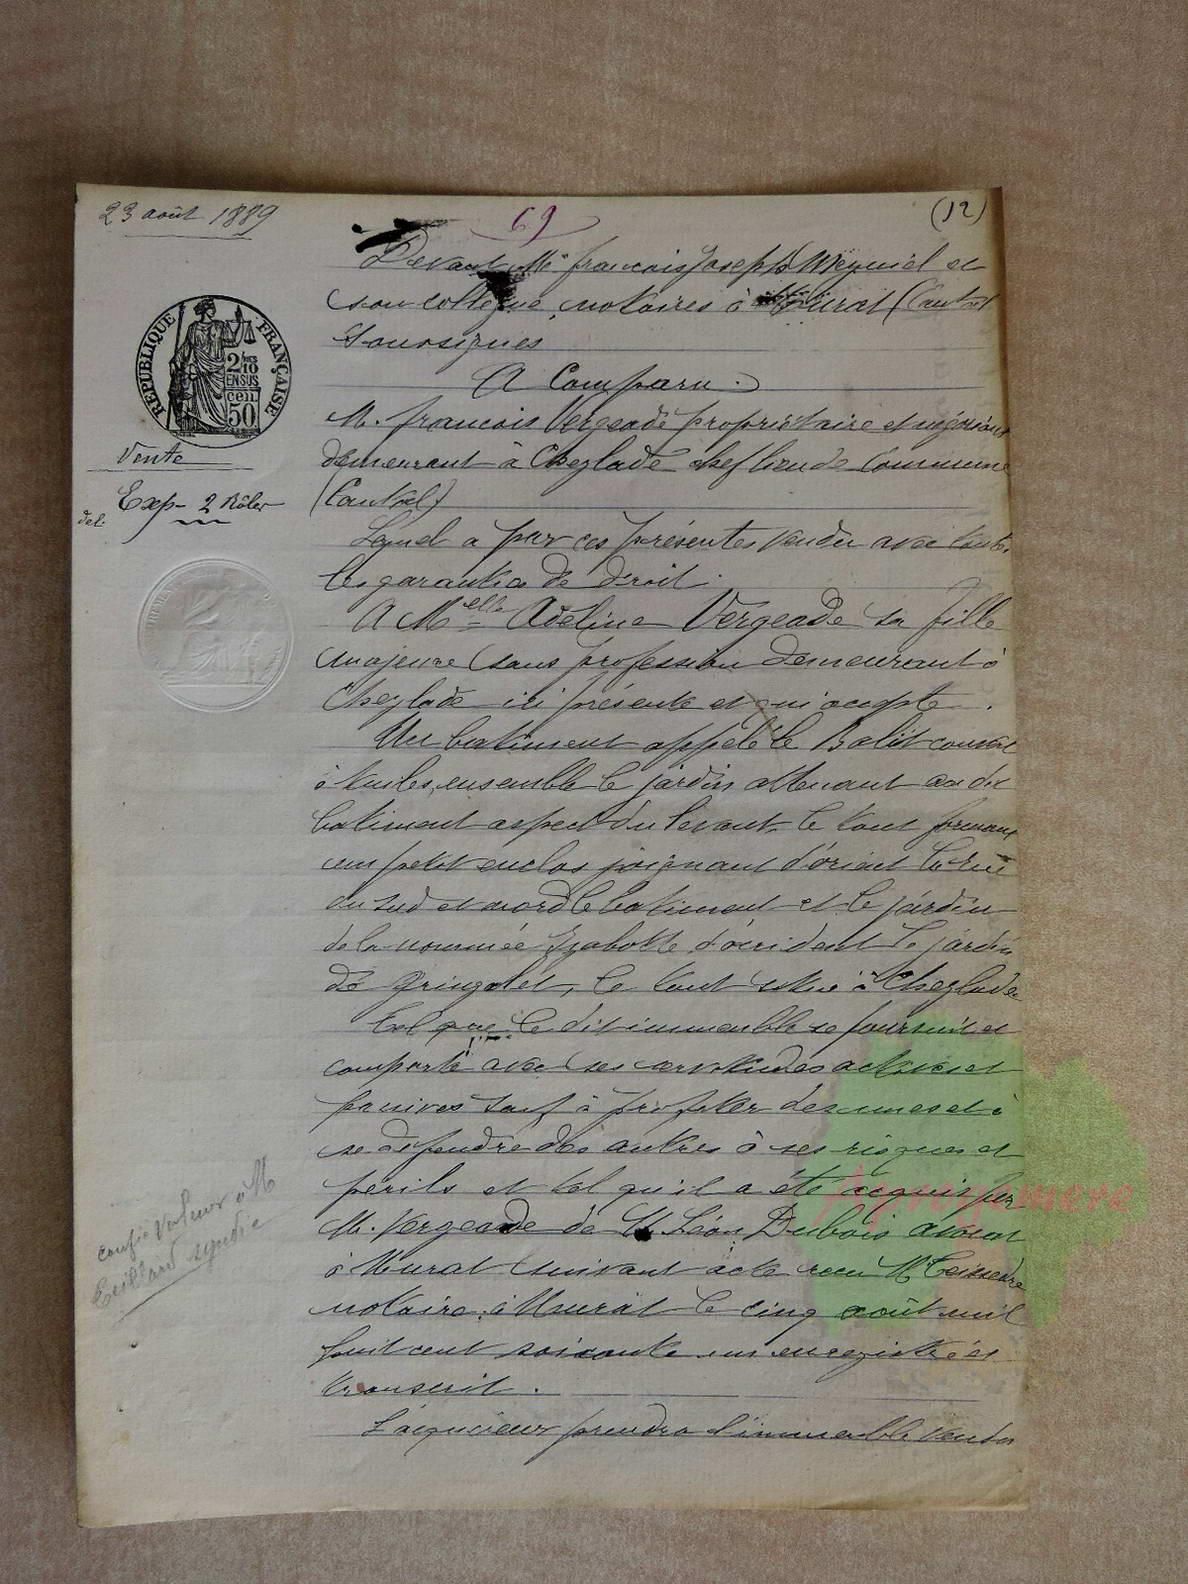 23 août 1889
69
(12)
Devant Me françois Joseph et
son collègue, notaires à Murat (Cantal
Soussignés
A Comparu.
M. françois Vergeade propriétaire et négociant
demeurant à Cheylade chef lieu de Commune
(Cantal)
Lequel a par ces présentes vendu avec toutes
les garanties de droit.
A Melle Adeline Vergeade sa fille
majeure sans profession demeurant à
Cheylade ici présente et qui accepte.
Un batiment appelé le couvert
à tuiles, ensemble le jardin attenant au dit
batiment aspect du levant, le tout formant
un petit enclos joignant d'orient la rue
du Sud et nord le batiment et le jardin
de la nommée d'occident le jardin
de Gringolet, le tout situé à Cheylade
Tel que le dit immeuble se poursuit et
comporte avec ses servitudes actives et
passives sauf à profiter des unes et à
se défendre des autres à ses risques et
périls et tel qu'il a été acquis par
M. Vergeade de M. Léon Dubois avocat
à Murat suivant acte reçu Me Teissedre
notaire à Murat le cinq août mil
huit cent soixante un enregistré et
transcrit.
L'acquéreur prendra l'immeuble vendu
RÉPUBLIQUE FRANÇAISE
2/10
EN SUS
cen.
50
Vente
Exp - 2 Rôles
del.
à M
syndic